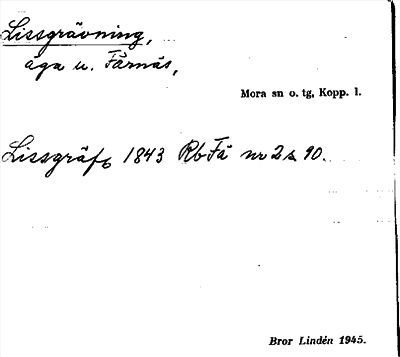 Lissgrävning,
äga u. Färnäs,
Mora sn o. tg, Kopp. l.
Lissgräf, 1843 Rb Fä nr 2 s 90.
Bror Lindén 1945.